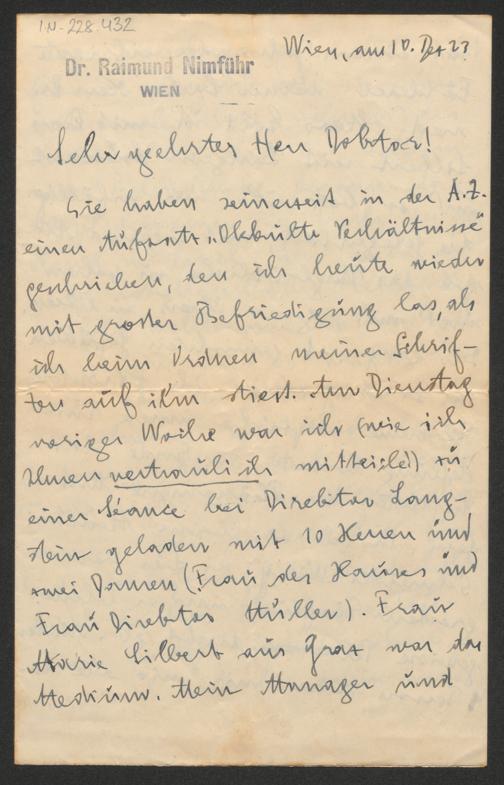 I.N.-228.432
Wien, am 10. Dez 23
Dr. Raimund Nimführ
WIEN
Sehr geehrter Herr Doktor!
Sie haben seinerzeit in der A.Z.
einen Aufsatz „Okkulte Verhältnisse"
geschrieben, den ich heute wieder
mit grosser Befriedigung las, als
ich beim Ordnen meiner Schrif-
ten auf ihn stiess. Am Dienstag
voriger Woche war ich (wie ich
Ihnen vertraulich mitteile) zu
einer Séance bei Direktor Lang-
stein geladen mit 10 Herren und
zwei Damen (Frau des Hauses und
Frau Direktor Müller). Frau
Marie Silbert aus Graz war das
Medium. Mein Manager und